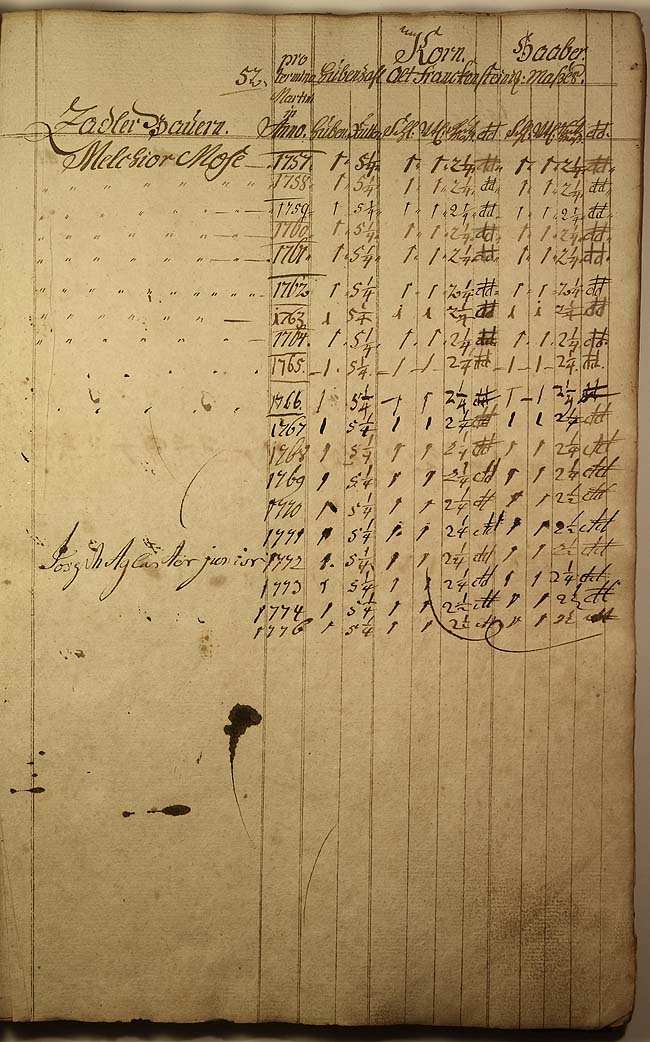 Korn. Haaber.
52. pro termino Hubenzahl Alt Franckensteinis: Maßes.
Martini
Zadler Bauern. Anno. Huben. Schl. Schl. dd.
Melchior Mose 1757. 1. 5¼ 1. 1. 2¼ dd. 1. 1. 2¼ dd.
" " " " " " 1758. 1. 5¼ 1. 1. 2¼ dd. 1. 1. 2¼ dd.
" " " " " 1759. 1. 5¼ 1. 1. 2¼ dd. 1. 1. 2¼ dd.
" " " " " 1760. 1. 5¼ 1. 1. 2¼ dd. 1. 1. 2¼ dd.
" " " " " 1761. 1. 5¼ 1. 1. 2¼ dd. 1. 1. 2¼ dd.
" " " " " " 1762. 1. 5¼ 1. 1. 2¼ dd. 1. 1. 2¼ dd.
" " " " " 1763. 1 5¼ 1 1 2¼ dd 1 1 2¼ dd
" " " " " 1764. 1. 5¼ 1. 1. 2¼ dd 1. 1. 2¼ dd.
" " " " 1765. 1. 5¼ 1 1 2¼ dd 1 1 2¼ dd.
" " " " 1766. 1 5¼ 1 1 2¼ dd 1 1 2¼ dd
1767 1 5¼ 1 1 2¼ dd 1 1 2¼ dd
1768 1 5¼ 1 1 2¼ dd 1 1 2¼ dd
1769 1 5¼ 1 1 2¼ dd 1 1 2¼ dd
1770 1 5¼ 1 1 2¼ dd 1 1 2¼ dd
1771 1 5¼ 1 1 2¼ dd 1 1 2¼ dd
Joseph junior 1772 1. 5¼ 1 1 2¼ dd 1 1 2¼ dd
1773 1 5¼ 1 1 2¼ dd 1 1 2¼ dd
1774 1 5¼ 1 1 2¼ dd 1 1 2¼ dd
1776 1 5¼ 1 1 2¼ dd 1 1 2¼ dd